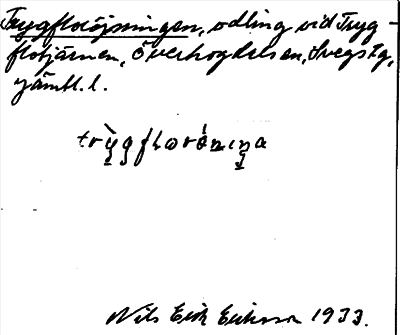 Trygfloröjningen, odling vid Tryg-
flotjärnen, Överhogdals sn, Svegs tg,
Jämtl. l.
trỳgflωrö́nıŋa
Nils Erik Eriksson 1933.